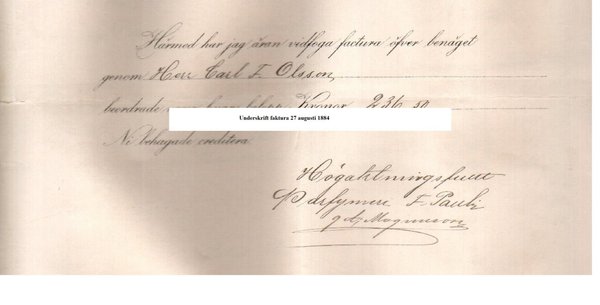 Härmed har jag äran vidfoga factura öfver benäget
genom Herr Carl F. Olsson,
beordrade Kronor 236 50
Underskrift faktura 27 augusti 1884
Ni behagade creditera.
Högaktningsfullt
Parfymeri F. Pauli
gd. Magnusson